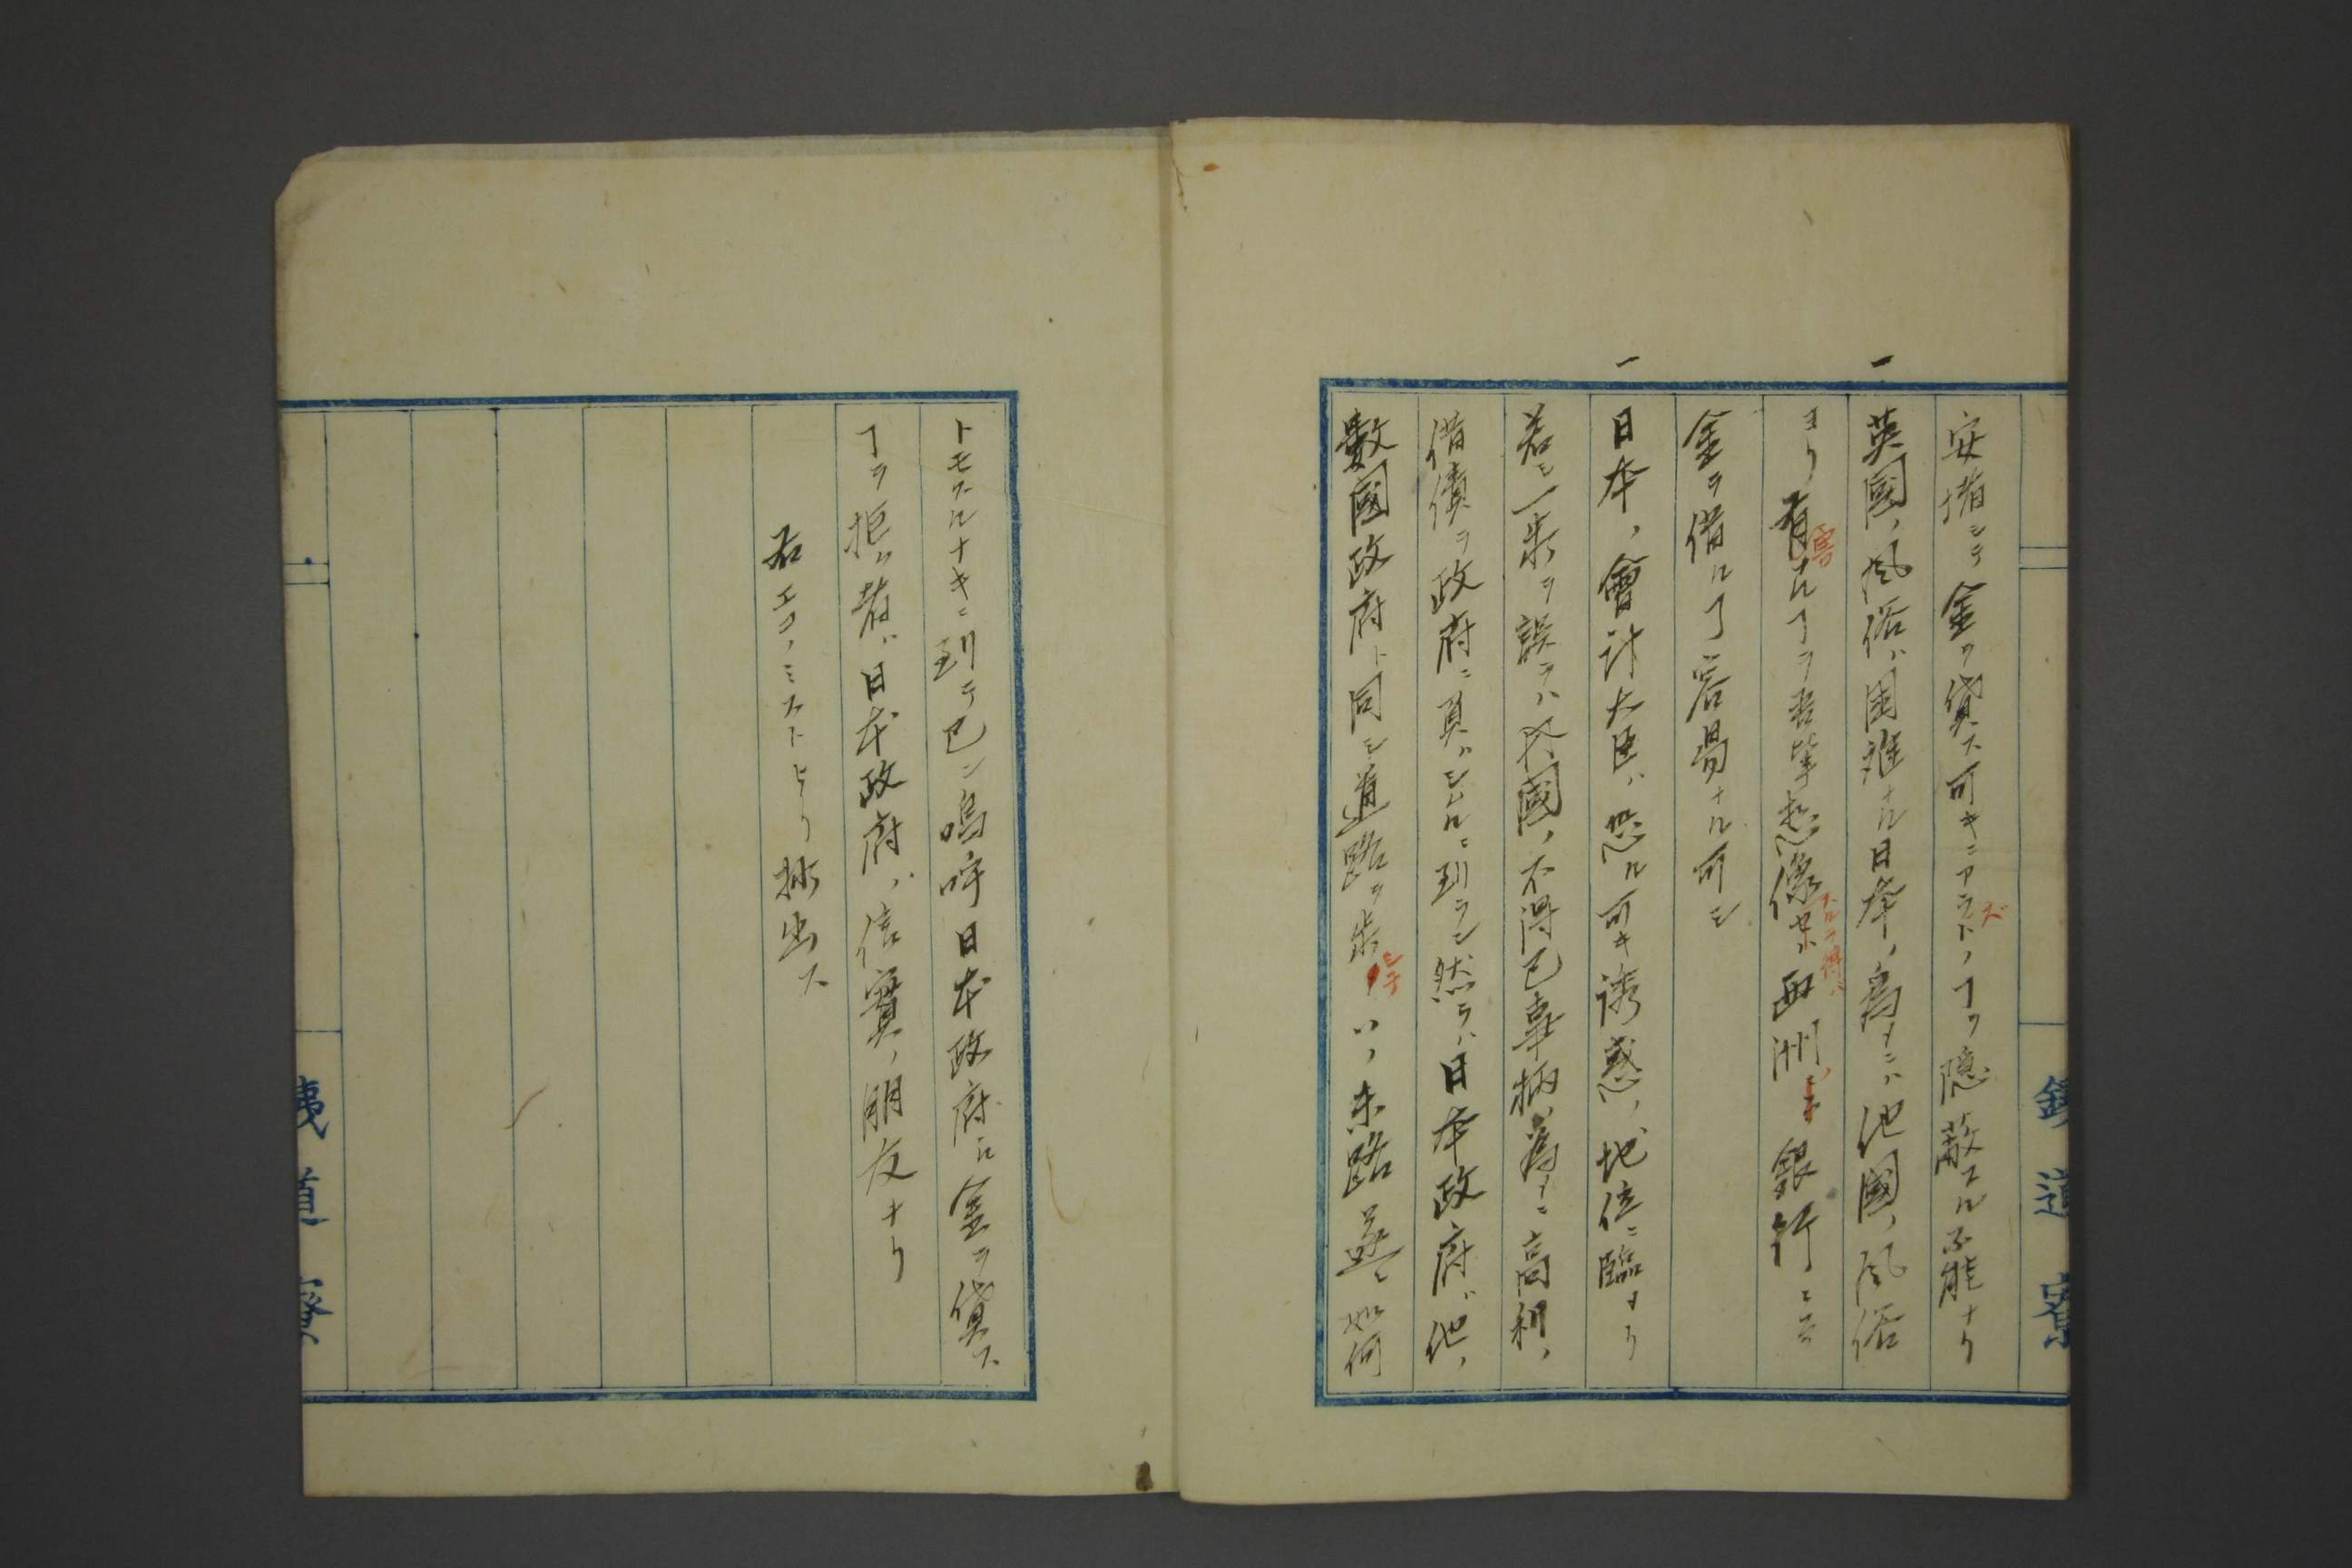 鐵道寮
安堵シテ金ヲ貸ス可キニアラズトノヿヲ隠蔽スル不能ナリ
一 英國ノ風俗ハ困難ナル日本ノ為メニハ他國ノ風俗
ヨリ有害ナルヿヲ吾輩想像スルヿヲ得ハ西洲ノ銀行ニテ
金ヲ借ルヿ容昜ナル可シ
一 日本ノ會計大臣ハ恐ル可キ誘惑ノ地位ニ臨メリ
若シ一歩ヲ誤ラハ國ノ不得已事柄ノ為メニ高利ノ
借債ヲ政府ニ負ハシムルニ到ラン然ラハ日本政府ハ他ノ
數國政府ト同シ道路ヲ歩シテ末路如何
トモスルナキニ到テ已ン嗚呼日本政府ニ金ヲ貸ス
ヿヲ拒ム者ハ日本政府ノ信實ノ朋友ナリ
右エコノミストヨリ抄出ス
鐵道寮